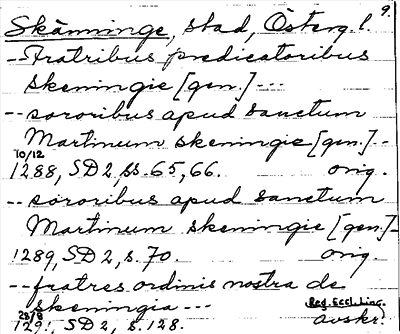 9.
Skänninge, stad, Österg.l.
-- Fratribus predicatoribus
skeningie [gen.] ---
-- sororibus apud sanctum
Martinum skeningie [gen.] --
10/12
1288, SD 2, ss. 65, 66. orig.
-- sororibus apud sanctum
Martinum skeningie [gen.] --
1289, SD 2, s. 70. orig.
-- fratres ordinis nostra de
skeningia --- Reg. Eccl. Linc.
1291, SD 2, s. 128. avskr.